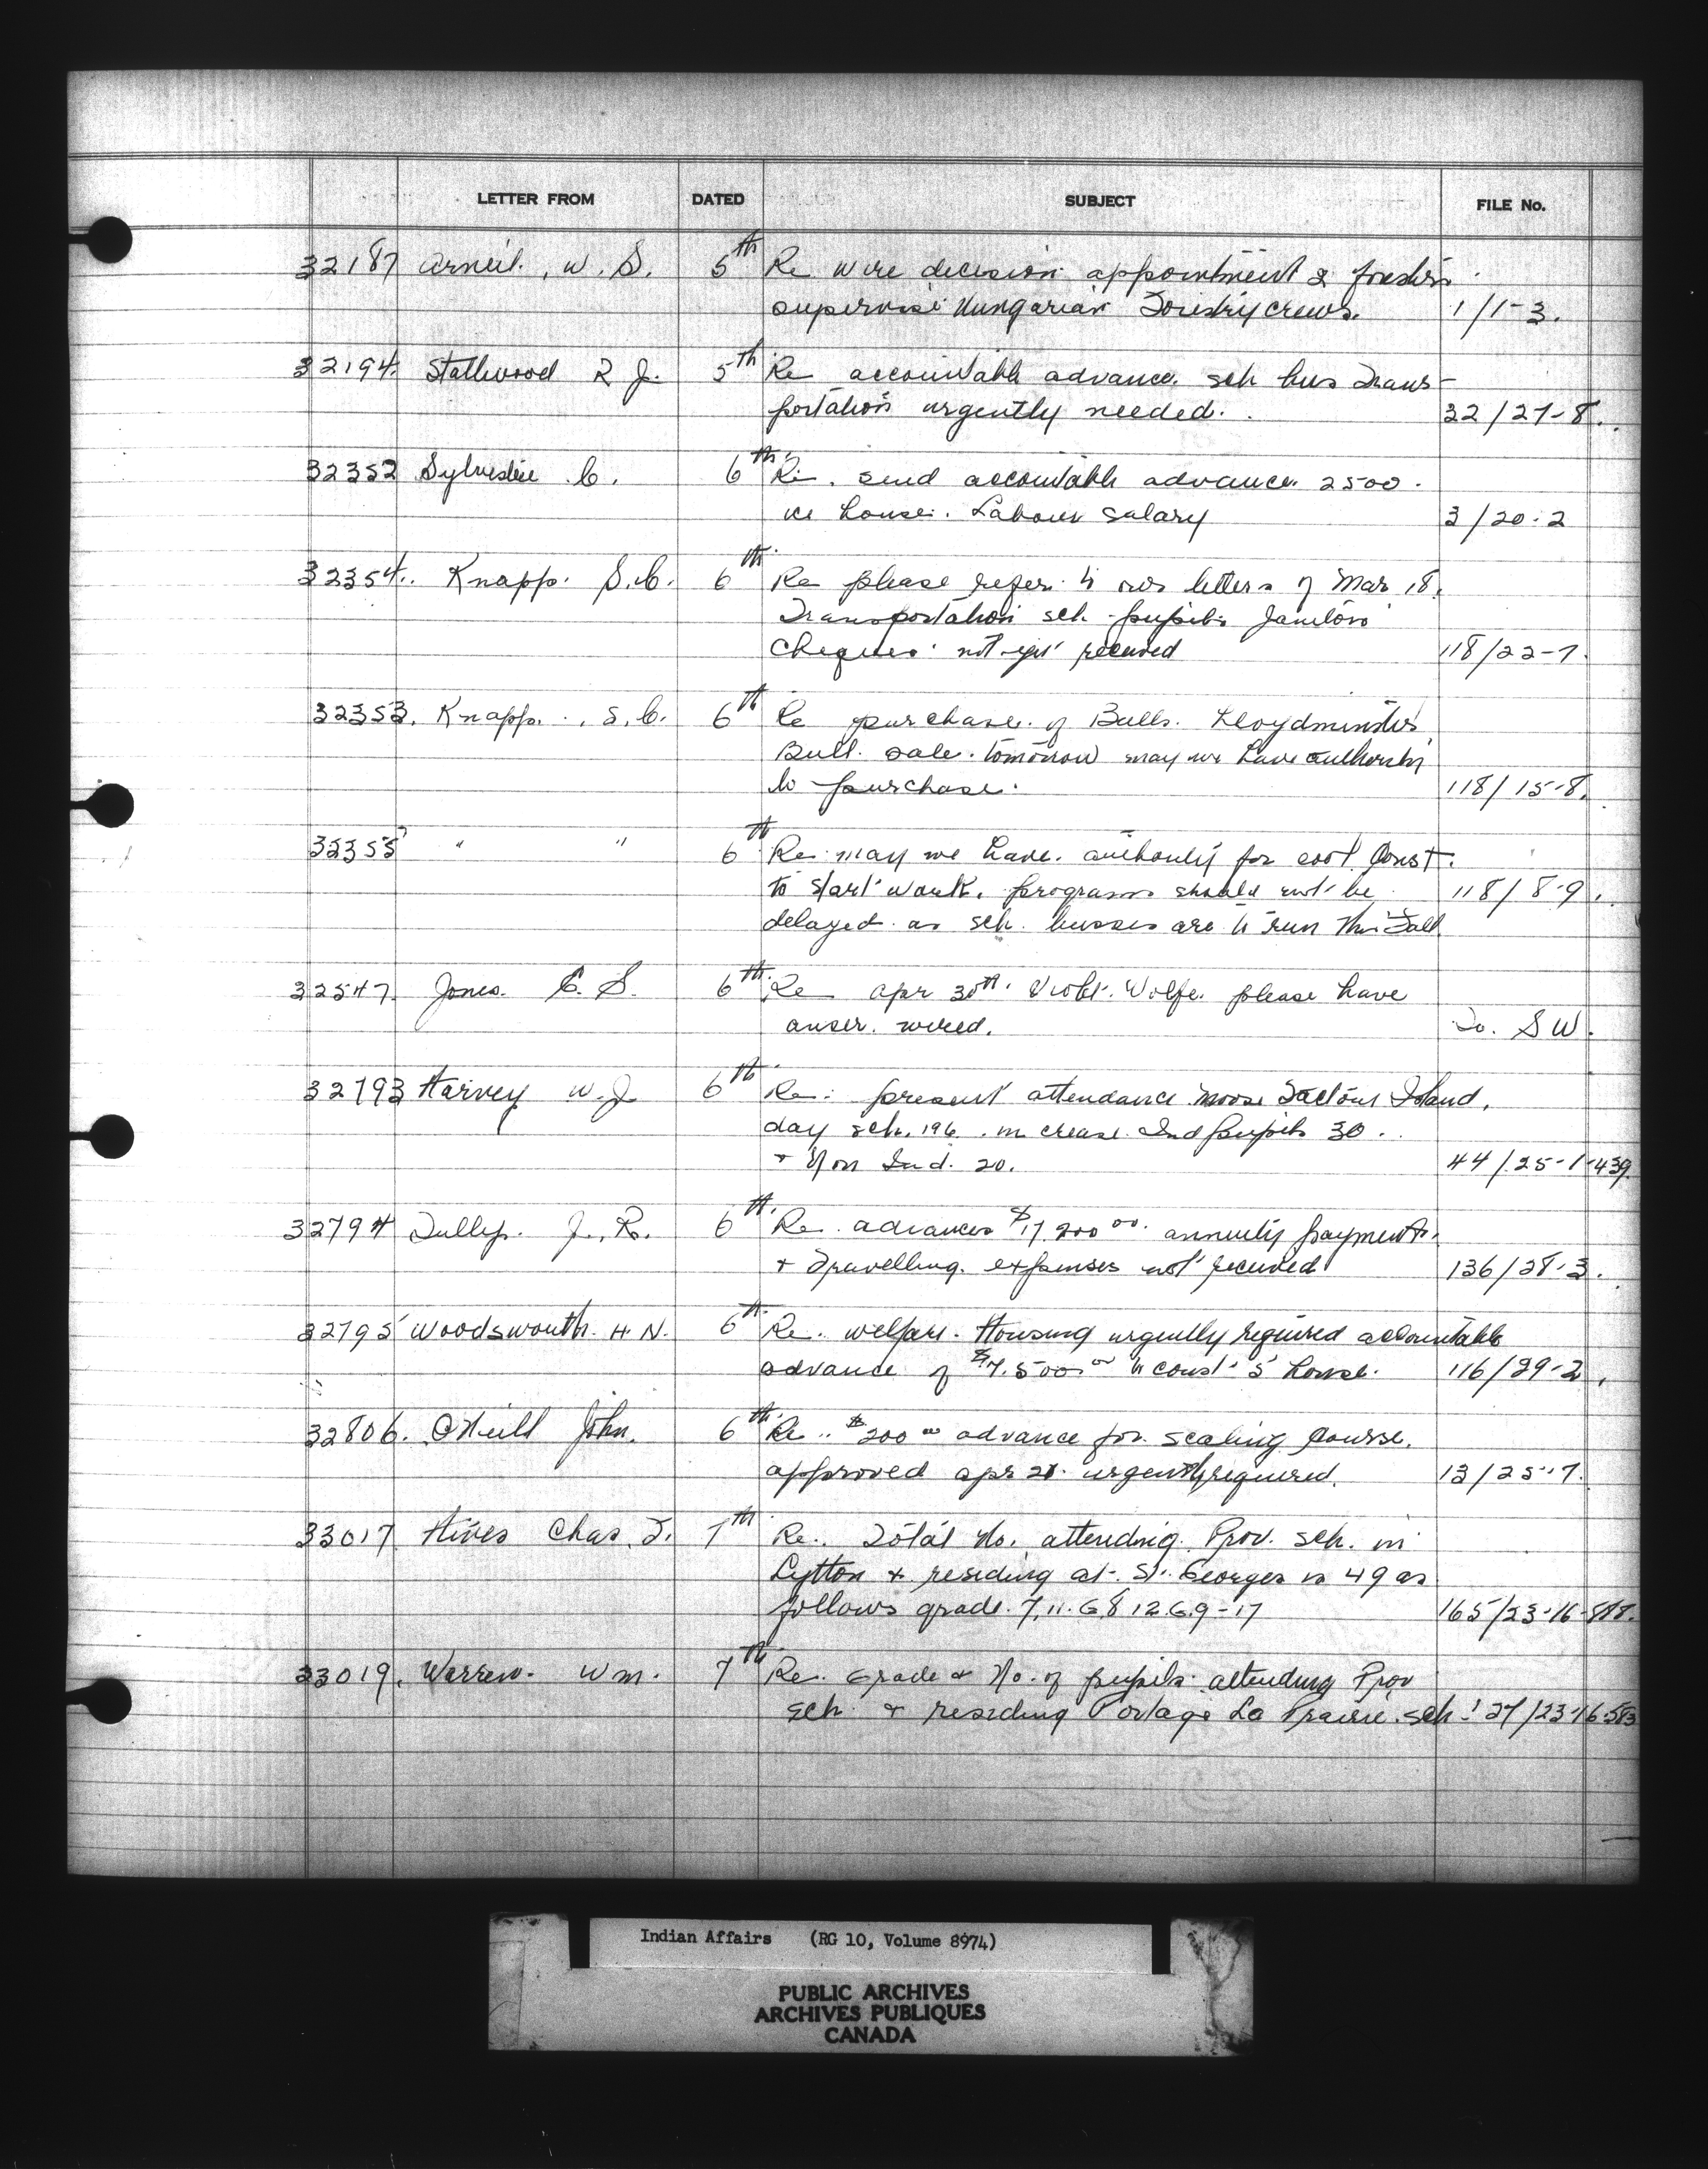 LETTER FROM DATED SUBJECT FILE No.
32187 Arneil, W. S. 5th Re wire decision appointment 2 foresters
supervise Hungarian Forestry crews. 1/1-3.
32194. Stallwood R J. 5th Re accountable advance. sch bus Trans-
portation urgently needed. 32/27-8.
32352 Sylvestre C. 6th Re. send accountable advance. 2500.
re house. Labour salary 3/20-2
32354. Knapp. S.C. 6th Re please refer to our letters of Mar 18.
Transportation sch. pupils Janitors
Cheques not yet received 118/22-7.
32353. Knapp., S.C. 6th Re purchase of Bulls. Lloydminster
Bull sale. tomorrow may we have authority
to purchase. 118/15-8.
32355 " " 6th Re may we have. authority for Const.
to start work. program should not be 118/8-9.
delayed as sch. busses are to run this Fall
32547. Jones. C. S. 6th Re Apr 30th. Violet. Wolfe. please have
anser. wired. To. S W.
32793 Harvey W. J 6th Re: present attendance Moose Factory Island.
day sch. 196. increase. Ind pupils 30.
+ Non Ind. 20. 44/25-1-439.
32794 Tully. J. R. 6th. Re. advances $17 200 00. annuity payments.
+ Travelling. expenses not received 136/28-3.
32795 Woodsworth. H. N. 6th. Re. welfare. Housing urgently required accountable
advance of $7.500. 00 to const. 5 house. 116/29-2.
32806. O'Neill John. 6th. Re.. $200 00 advance for scaling Course.
approved Apr 21. urgently required. 13/25-7.
33017 Hives Chas. F. 7th Re.. Total No. attending. Prov. sch. in
Lytton + residing at. St. Georges is 49 as
follows grade. 7, 11. 6 8 12. 6. 9-17 165/23-16-
33019. Warren. Wm. 7th Re. Grade & No. of pupils attending Prov
sch + residing Portage La Prairie. sch. 27/23-16-583
Indian Affairs (RG 10, Volume 8974)
PUBLIC ARCHIVES
ARCHIVES PUBLIQUES
CANADA